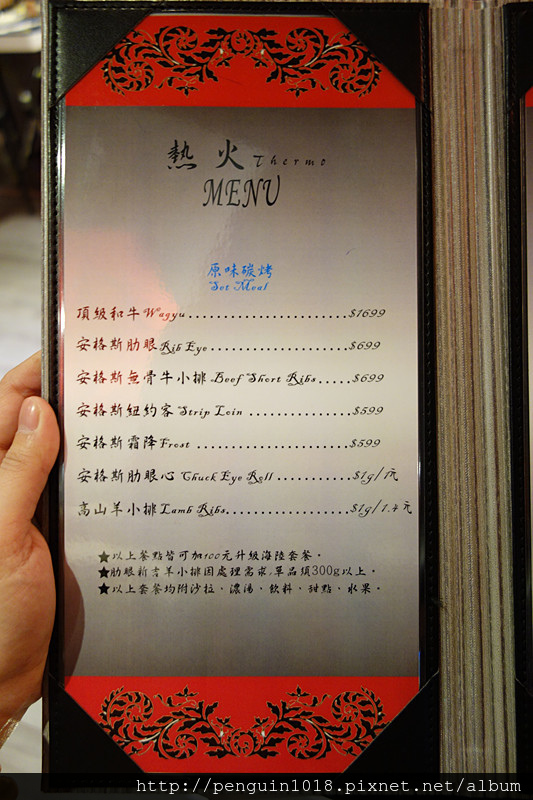 熱火 Thermo
MENU
原味碳烤
Set Meal
頂級和牛 Wagyu.......................$1699
安格斯肋眼 Rib Eye....................$699
安格斯無骨牛小排 Beef Short Ribs.....$699
安格斯紐約客 Strip Loin ...............$599
安格斯霜降 Frost ......................$599
安格斯肋眼心 Chuck Eye Roll ...........$1g/1元
高山羊小排 Lamb Ribs..................$1g/1.4元
★以上餐點皆可加100元升級海陸套餐。
★肋眼新和羊小排因處理需求,單品須300g以上。
★以上套餐均附沙拉、濃湯、飲料、甜點、水果。
http://penguin1018.pixnet.net/album